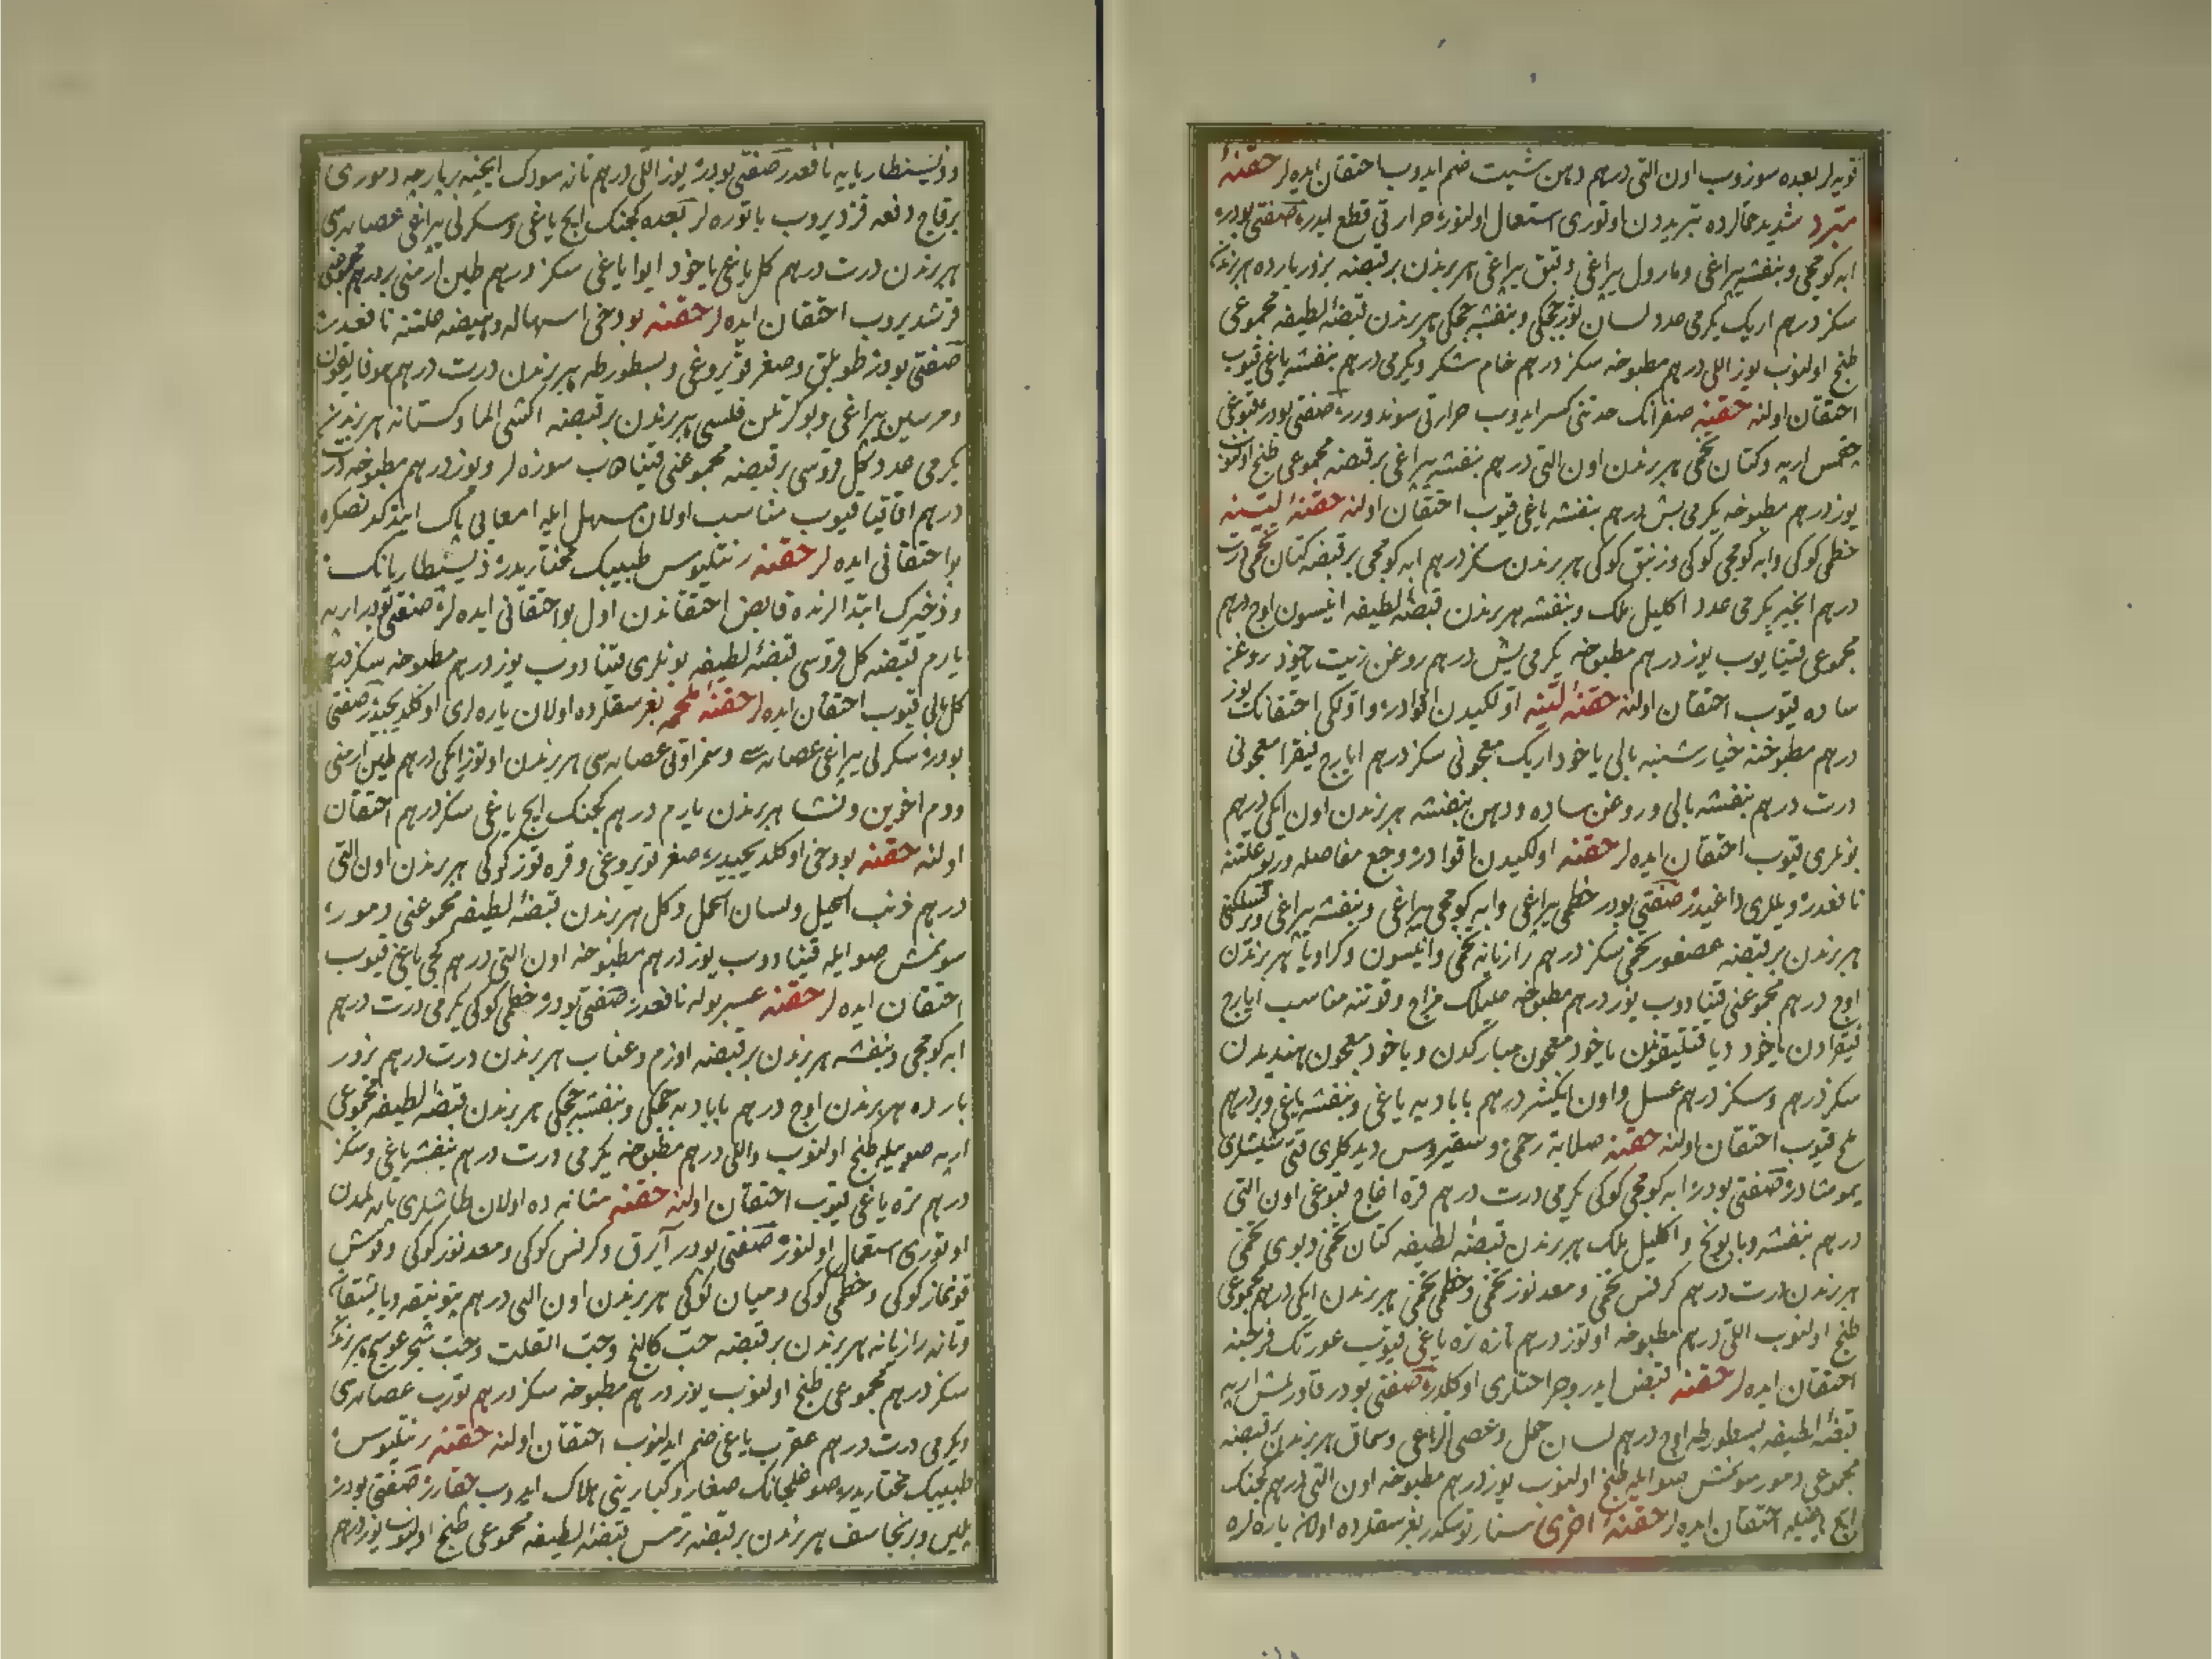 قویه لر بعده سوزوب اون التی درهم دهن شبت ضم ایدوب احتقان ایده لر حقنهٔ
مبرد شدید حمالرده تبریددن اوتوری استعمال اولنور حرارتی قطع ایدر صفتی بودر
ابه کومجی و بنفشه یپراغی و مارول یپراغی ونبق یپراغی هر برندن بر قبضه بزور بارده هر برندن
سکز درهم اریک یکرمی عدد لسان ثور چیچکی و بنفشه چیچکی هر برندن قبضهٔ لطیفه مجموعی
طبخ اولنوب یوز اللی درهم مطبوخه سکز درهم خام شکر و یکرمی درهم بنفشه یاغی قیوب
احتقان اولنه حقنه صفرانک حدتنی کسر ایدوب حرارتی سوندورر صفتی بودر
چقمس اربه و کتان تخمی هر برندن اون التی درهم بنفشه یپراغی بر قبضه مجموعی طبخ اولنوب
یوز درهم مطبوخه یکرمی بش درهم بنفشه یاغی قیوب احتقان اولنه حقنهٔ لینه
خطمی کوکی و ابه کومجی کوکی و زنبق کوکی هر برندن سکز درهم ابه کومجی بر قبضه کتان تخمی درت
درهم انجیر یکرمی عدد اکلیل ملک و بنفشه هر برندن قبضهٔ لطیفه انیسون اوج درهم
مجموعی قینایوب یوز درهم مطبوخه یکرمی بش درهم روغن زیت یاخود روغن
ساده قیوب احتقان اولنه حقنهٔ لینه اولکیدن اقوادر و اولکی احتقانک یوز
درهم مطبوخنه خیارشنبه بالی یاخود اریک معجونی سکز درهم ایارج فیقرا معجونی
درت درهم بنفشه بالی و روغن ساده و دهن بنفشه هر برندن اون ایکی درهم
بونلری قیوب احتقان ایده لر حقنه اولکیدن اقوادر وجع مفاصله و قولنج علتنه
نافعدر و یللری داغیدر صفتی بودر خطمی یپراغی و ابه کومجی یپراغی و بنفشه یپراغی
هر برندن بر قبضه عصفور تخمی سکز درهم رازیانه تخمی و انیسون و کراویا هر برندن
اوج درهم مجموعنی قینادوب یوز درهم مطبوخه علیلک مزاج و قوتنه مناسب ایارج
فیقرادن یاخود دیافنلیقوندن یاخود معجون مبارکدن و یاخود معجون هندیدن
سکز درهم و سکز درهم عسل و اون ایکیشر درهم بابادیه یاغی و بنفشه یاغی و بر درهم
ملح قیوب احتقان اولنه حقنه صلابة رحمی و سقیروس دیدکلری قتی شیشلری
یومشادر صفتی بودر ابه کومجی کوکی یکرمی درت درهم قره اغاج قبوغی اون التی
درهم بنفشه و بابونج و اکلیل ملک هر برندن قبضهٔ لطیفه کتان تخمی و بوی تخمی
هر برندن درت درهم کرفس تخمی و معدنوز تخمی و خطمی تخمی هر برندن ایکی درهم مجموعی
طبخ اولنوب اللی درهم مطبوخه اوتوز درهم تازه تره یاغی قیوب عورتک فرجنه
احتقان ایده لر حقنه قبض ایدر و جراحتلری اوکلدر صفتی بودر قاورلمش اربه
قبضهٔ لطیفه بسطورطه اوج درهم لسان حمل و عصی الراعی و سماق هر برندن بر قبضه
مجموعی دمور سونمش صو ایله طبخ اولنوب یوز درهم مطبوخه اون التی درهم کجینک
ایچ یاغیله احتقان ایده لر حقنهٔ اخری بغرسقلرده اولان یاره لره
و ذیسنطاریایه نافعدر صفتی بودر یوز اللی درهم تازه سودک ایچنه بر پارچه دموری
بر قاج دفعه قزدیروب باتوره لر بعده کجینک ایچ یاغی و سکرلی یپراغی عصاره سی
هر برندن درت درهم کل یاغی یاخود ایوا یاغی سکز درهم طین ارمنی بر درهم مجموعنی
قرشدیروب احتقان ایده لر حقنه بو دخی اسهاله و هیضه علتنه نافعدر
صفتی بودر طوبلق و صغر قویروغی و بسطورطه هر برندن درت درهم هوفاریقون
و مرسین یپراغی و بوکرتلن فلسی هر برندن بر قبضه اکشی الما و کستانه هر برندن
یکرمی عدد کل قوروسی بر قبضه مجموعنی قینادوب سوزه لر و یوز درهم مطبوخه درت
درهم اقاقیا قیوب مناسب اولان مسهل ایله امعایی پاک ایتدکدنصکره
بو احتقانی ایده لر حقنه رنتلیوس طبیبک مختاریدر ذیسنطاریانک
و زخیرک ابتدالرنده قابض احتقاندن اول بو احتقانی ایده لر صفتی بودر اربه
یارم قبضه کل قوروسی قبضهٔ لطیفه بونلری قینادوب یوز درهم مطبوخه سکز درهم
کل بالی قیوب احتقان ایده لر حقنهٔ ملحمه بغرسقلرده اولان یاره لری اوکلدیجیدر صفتی
بودر سکرلی یپراغی عصاره سی و سمز اوتی عصاره سی هر برندن اوتوز ایکی درهم طین ارمنی
و دم اخوین و نشا هر برندن یارم درهم کجینک ایچ یاغی سکز درهم احتقان
اولنه حقنه بو دخی اوکلدیجیدر صغر قویروغی و قره قوز کوکی هر برندن اون التی
درهم ذنب الخیل و لسان الحمل و کل هر برندن قبضهٔ لطیفه مجموعنی دمور
سونمش صو ایله قینادوب یوز درهم مطبوخه اون التی درهم کچی یاغی قیوب
احتقان ایده لر حقنه عسر بوله نافعدر صفتی بودر خطمی کوکی یکرمی درت درهم
ابه کومجی و بنفشه هر برندن بر قبضه اوزم و عناب هر برندن درت درهم بزور
بارده هر برندن اوج درهم بابادیه چیچکی و بنفشه چیچکی هر برندن قبضهٔ لطیفه مجموعی
اربه صوییله طبخ اولنوب و اللی درهم مطبوخه یکرمی درت درهم بنفشه یاغی و سکز
درهم تره یاغی قیوب احتقان اولنه حقنه مثانه ده اولان طاشلری پاره لمدن
اوتوری استعمال اولنور صفتی بودر آیرق و کرفس کوکی و معدنوز کوکی و قوش
قونماز کوکی و خطمی کوکی و میان کوکی هر برندن اون التی درهم
و تازه رازیانه هر برندن بر قبضه حب کاکنج و حب القلت و حب
سکز درهم مجموعی طبخ اولنوب یوز درهم مطبوخه سکز درهم تورب عصاره سی
و یکرمی درت درهم عقرب یاغی ضم ایدلنوب احتقان اولنه حقنه رنتلیوس
طبیبک مختاریدر صوغلجانک صغار و کبارینی هلاک ایدوب چقارر صفتی بودر
پلین و برنجاسف هر برندن بر قبضه ترمس قبضهٔ لطیفه مجموعی طبخ اولنوب یوز درهم